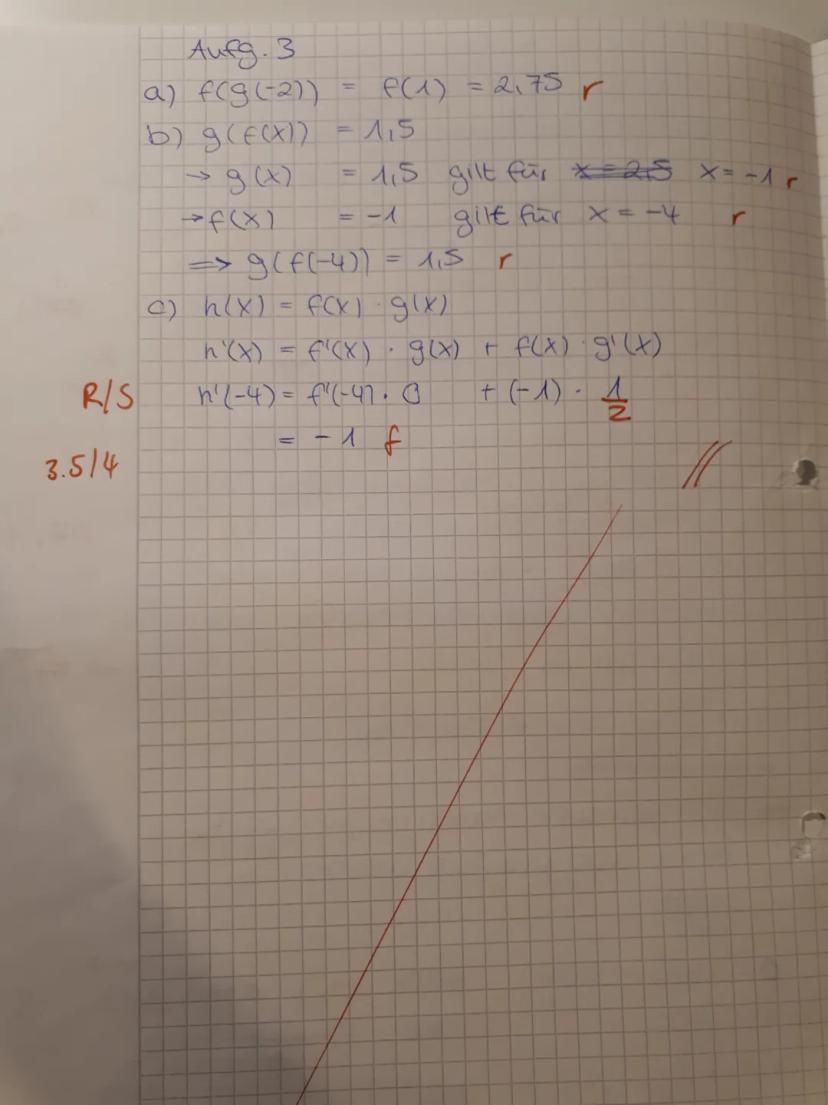 Aufg. 3
a) f(g(-2)) = f(1) = 2,75 r
b) g(f(x)) = 1,5
→ g(x) = 1,5 gilt für x = 2,5 x = -1 r
→ f(x) = -1 gilt für x = -4 r
⇒ g(f(-4)) = 1,5 r
c) h(x) = f(x) · g(x)
h'(x) = f'(x) · g(x) + f(x) · g'(x)
R/S h'(-4) = f'(-4) · 0 + (-1) · 1/2
= -1 f
3.5/4